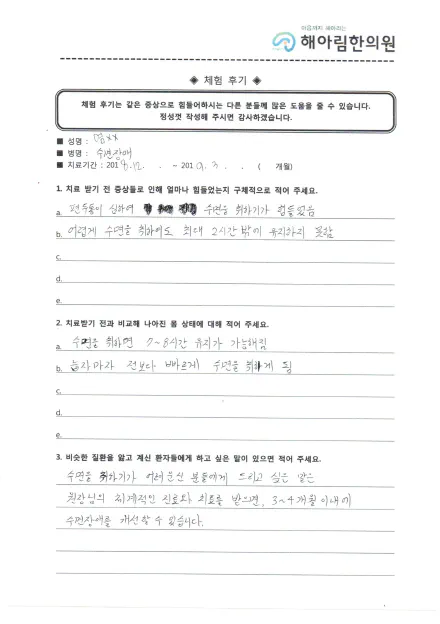 마음까지 헤아리는
해아림한의원
◈ 체험 후기 ◈
체험 후기는 같은 증상으로 힘들어하시는 다른 분들께 많은 도움을 줄 수 있습니다.
정성껏 작성해 주시면 감사하겠습니다.
■ 성명 : 염xx
■ 병명 : 수면장애
■ 치료기간 : 2018. 12. . - 2019. 3 . . ( 개월)
1. 치료 받기 전 증상들로 인해 얼마나 힘들었는지 구체적으로 적어 주세요.
a. 편두통이 심하여 수면을 취하기가 힘들었음
b. 어렵게 수면을 취하여도 최대 2시간 밖에 유지하지 못함
c.
d.
e.
2. 치료받기 전과 비교해 나아진 몸 상태에 대해 적어 주세요.
a. 수면을 취하면 7~8시간 유지가 가능해짐
b. 눕자마자 전보다 빠르게 수면을 취하게 됨
c.
d.
e.
3. 비슷한 질환을 앓고 계신 환자들에게 하고 싶은 말이 있으면 적어 주세요.
수면을 취하기가 어려우신 분들에게 드리고 싶은 말은
원장님의 체계적인 진료와 치료를 받으면, 3~4개월 이내에
수면장애를 개선할 수 있습니다.